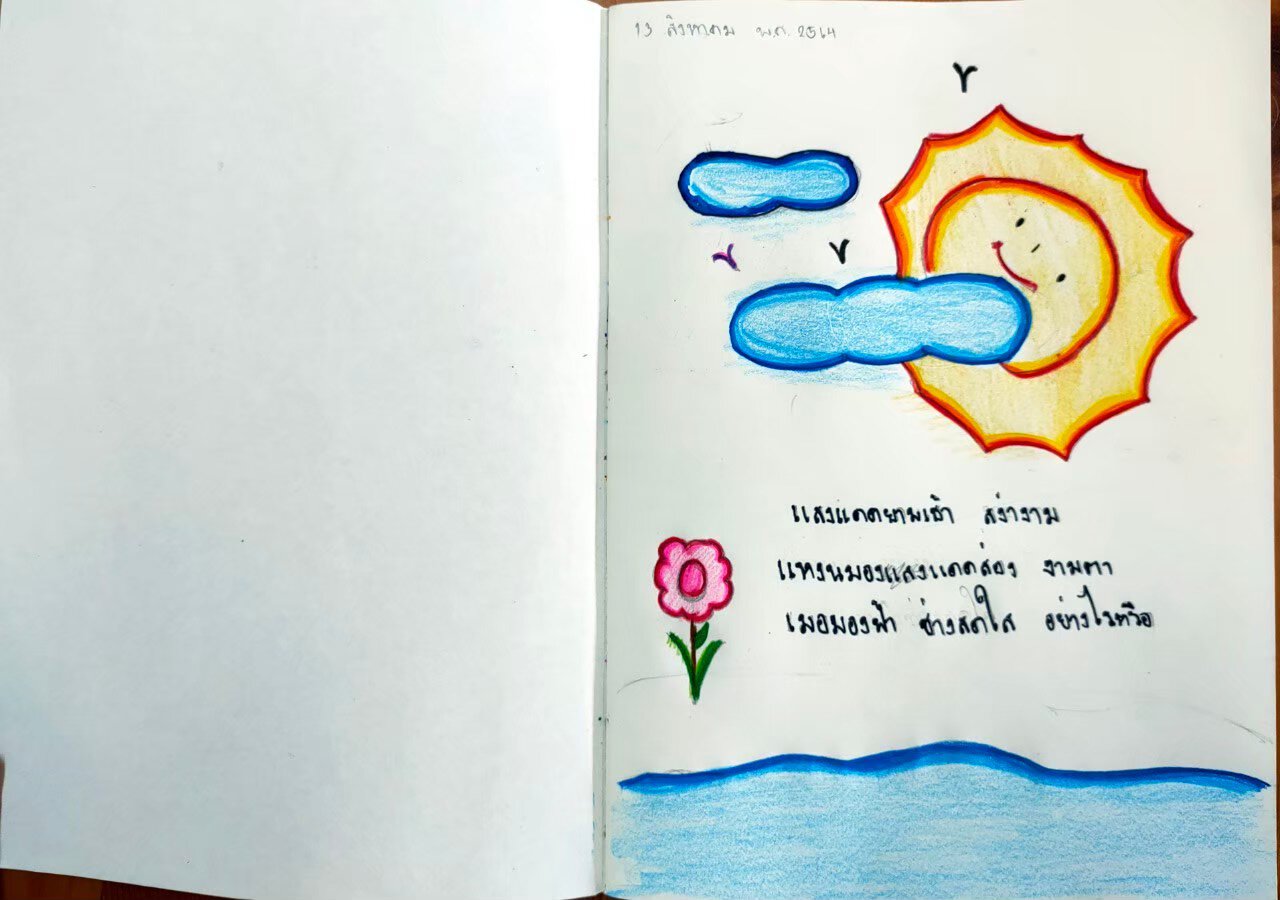 13 สิงหาคม พ.ศ. 2564
แสงแดดยามเช้า สง่างาม
แหงนมองแสงแดดส่อง งามตา
เมอมองฟ้า ช่างสดใส อย่างไรหรือ